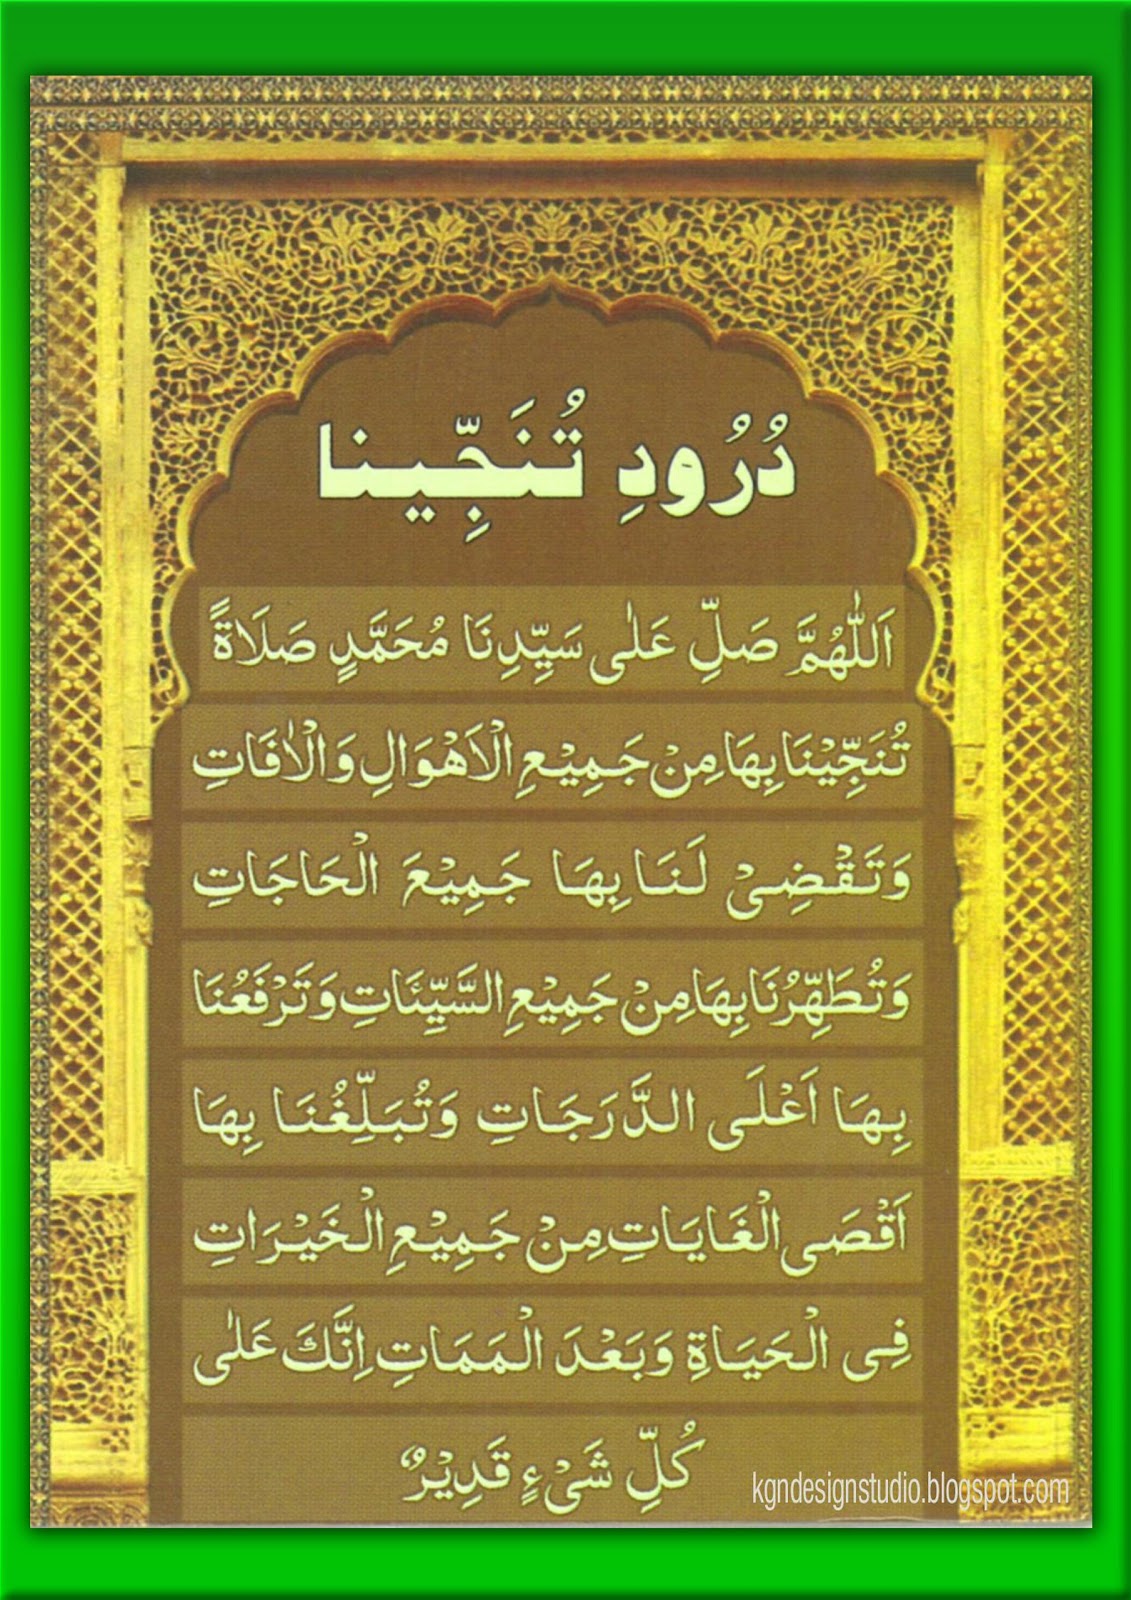 دُرُودِ تُنَجِّينا
اَللّٰهُمَّ صَلِّ عَلٰى سَيِّدِنَا مُحَمَّدٍ صَلَاةً
تُنَجِّيْنَا بِهَا مِنْ جَمِيْعِ الْاَهْوَالِ وَالْاٰفَاتِ
وَتَقْضِىْ لَنَا بِهَا جَمِيْعَ الْحَاجَاتِ
وَتُطَهِّرُنَا بِهَا مِنْ جَمِيْعِ السَّيِّئَاتِ وَتَرْفَعُنَا
بِهَا اَعْلَى الدَّرَجَاتِ وَتُبَلِّغُنَا بِهَا
اَقْصَى الْغَايَاتِ مِنْ جَمِيْعِ الْخَيْرَاتِ
فِى الْحَيَاةِ وَبَعْدَ الْمَمَاتِ اِنَّكَ عَلٰى
كُلِّ شَىْءٍ قَدِيْرٌ
kgndesignstudio.blogspot.com